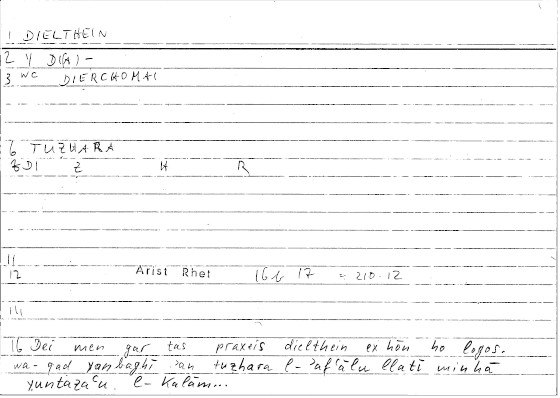 1 DIELTHEIN
2 Y D(A) -
3 WC DIERCHOMAI
6 TUZHARA
8 DI Z H R
11
12 Arist Rhet 16b 17 = 210.12
14
16 Dei men gar tas praxeis dielthein ex hōn ho logos.
wa-qad yanbaghī ʾan tuzhara l-ʾafʿālu llatī minhā
yuntazaʿu l-kalām...